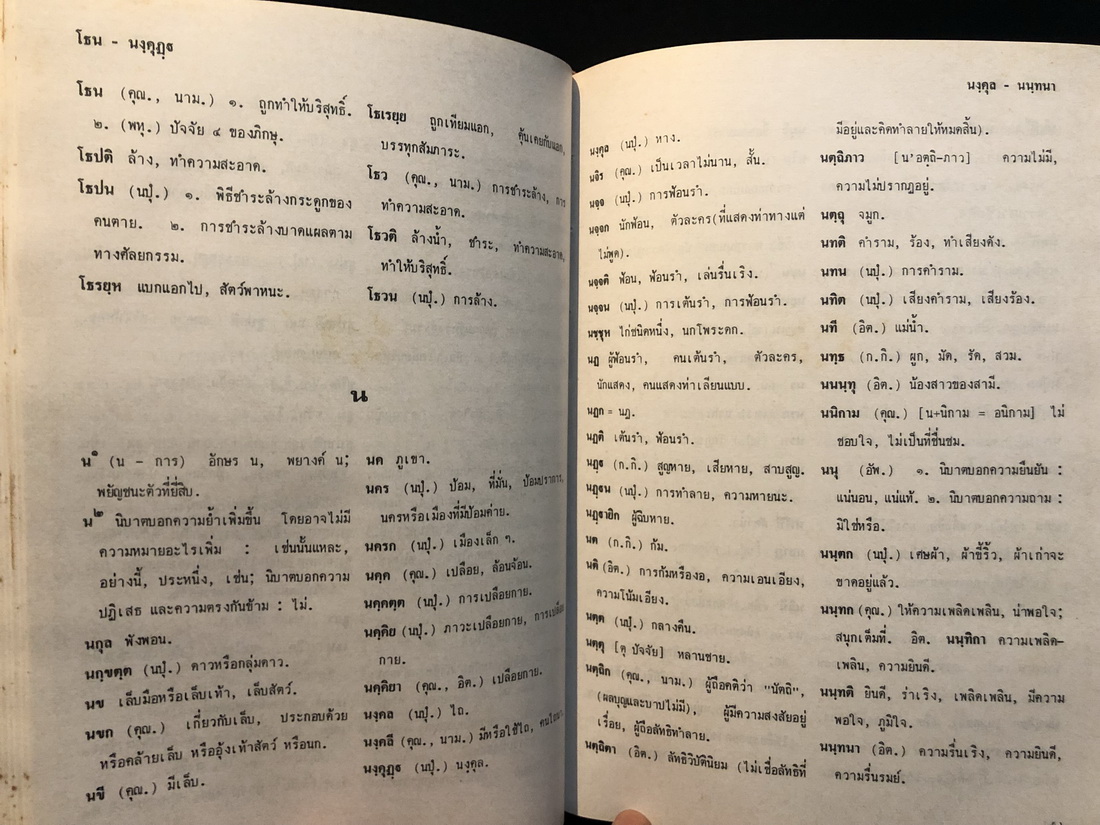 โธน - นงฺคุฏฺฐ
โธน (คุณ., นาม.) ๑. ถูกทำให้บริสุทธิ์.
๒. (พหุ.) ปัจจัย ๔ ของภิกษุ.
โธปติ ล้าง, ทำความสะอาด.
โธปน (นปุํ.) ๑. พิธีชำระล้างกระดูกของ
คนตาย. ๒. การชำระล้างบาดแผลตาม
ทางศัลยกรรม.
โธรยฺห แบกแอกไป, สัตว์พาหนะ.
โธเรยฺย ถูกเทียมแอก, คุ้นเคยกับแอก,
บรรทุกสัมภาระ.
โธว (คุณ., นาม.) การชำระล้าง, การ
ทำความสะอาด.
โธวติ ล้างน้ำ, ชำระ, ทำความสะอาด,
ทำให้บริสุทธิ์.
โธวน (นปุํ.) การล้าง.
น
น๑ (น - การ) อักษร น, พยางค์ น;
พยัญชนะตัวที่ยี่สิบ.
น๒ นิบาตบอกความย้ำเพิ่มขึ้น โดยอาจไม่มี
ความหมายอะไรเพิ่ม : เช่นนั้นแหละ,
อย่างนี้, ประหนึ่ง, เช่น; นิบาตบอกความ
ปฏิเสธ และความตรงกันข้าม : ไม่.
นกุล พังพอน.
นกฺขตฺต (นปุํ.) ดาวหรือกลุ่มดาว.
นข เล็บมือหรือเล็บเท้า, เล็บสัตว์.
นขก (คุณ.) เกี่ยวกับเล็บ, ประกอบด้วย
หรือคล้ายเล็บ หรืออุ้งเท้าสัตว์ หรือนก.
นขี (คุณ.) มีเล็บ.
นค ภูเขา.
นคร (นปุํ.) ป้อม, ที่มั่น, ป้อมปราการ,
นครหรือเมืองที่มีป้อมค่าย.
นครก (นปุํ.) เมืองเล็ก ๆ.
นคฺค (คุณ.) เปลือย, ล้อนจ้อน.
นคฺคตฺต (นปุํ.) การเปลือยกาย.
นคฺคิย (นปุํ.) ภาวะเปลือยกาย, การเปลือย
กาย.
นคฺคิยา (คุณ., อิต.) เปลือยกาย.
นงฺคล (นปุํ.) ไถ.
นงฺคลี (คุณ., นาม.) มีหรือใช้ไถ, คนไถนา.
นงฺคุฏฺฐ (นปุํ.) นงฺคุล.
นงฺคุล - นนฺทนา
นงฺคุล (นปุํ.) หาง.
นจิร (คุณ.) เป็นเวลาไม่นาน, สั้น.
นจฺจ (นปุํ.) การฟ้อนรำ.
นจฺจก นักฟ้อน, ตัวละคร(ที่แสดงท่าทางแต่
ไม่พูด).
นจฺจติ ฟ้อน, ฟ้อนรำ, เล่นรื่นเริง.
นจฺจน (นปุํ.) การเต้นรำ, การฟ้อนรำ.
นชฺชุห ไก่ชนิดหนึ่ง, นกโพระดก.
นฏ ผู้ฟ้อนรำ, คนเต้นรำ, ตัวละคร,
นักแสดง, คนแสดงท่าเลียนแบบ.
นฏก = นฏ.
นฏติ เต้นรำ, ฟ้อนรำ.
นฏฺฐ (ก.กิ.) สูญหาย, เสียหาย, สาบสูญ.
นฏฺฐน (นปุํ.) การทำลาย, ความหายนะ.
นฏฺฐายิก ผู้ฉิบหาย.
นต (ก.กิ.) ก้ม.
นติ (อิต.) การก้มหรืองอ, ความเอนเอียง,
ความโน้มเอียง.
นตฺต (นปุํ.) กลางคืน.
นตฺตุ [ตุ ปัจจัย] หลานชาย.
นตฺถิก (คุณ., นาม.) ผู้ถือคติว่า "นัตถิ",
(ผลบุญและบาปไม่มี), ผู้มีความสงสัยอยู่
เรื่อย, ผู้ถือลัทธิทำลาย.
นตฺถิตา (อิต.) ลัทธิวิบัตินิยม (ไม่เชื่อลัทธิที่
มีอยู่และคิดทำลายให้หมดสิ้น).
นตฺถิภาว [น'อตฺถิ-ภาว] ความไม่มี,
ความไม่ปรากฏอยู่.
นตฺถุ จมูก.
นทติ คำราม, ร้อง, ทำเสียงดัง.
นทน (นปุํ.) การคำราม.
นทิต (นปุํ.) เสียงคำราม, เสียงร้อง.
นที (อิต.) แม่น้ำ.
นทฺธ (ก.กิ.) ผูก, มัด, รัด, สวม.
นนนฺทุ (อิต.) น้องสาวของสามี.
นนิกาม (คุณ.) [น+นิกาม = อนิกาม] ไม่
ชอบใจ, ไม่เป็นที่ชื่นชม.
นนุ (อัพ.) ๑. นิบาตบอกความยืนยัน :
แน่นอน, แน่แท้. ๒. นิบาตบอกความถาม :
มิใช่หรือ.
นนฺตก (นปุํ.) เศษผ้า, ผ้าขี้ริ้ว, ผ้าเก่าจะ
ขาดอยู่แล้ว.
นนฺทก (คุณ.) ให้ความเพลิดเพลิน, น่าพอใจ;
สนุกเต็มที่. อิต. นนฺทิกา ความเพลิด-
เพลิน, ความยินดี.
นนฺทติ ยินดี, ร่าเริง, เพลิดเพลิน, มีความ
พอใจ, ภูมิใจ.
นนฺทนา (อิต.) ความรื่นเริง, ความยินดี,
ความรื่นรมย์.